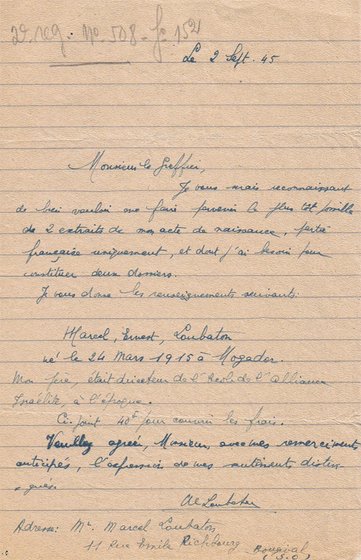 2e reg. - No 508 - fo 152
Le 2 Sept. 45
Monsieur le Greffier,
Je vous serais reconnaissant
de bien vouloir me faire parvenir le plus tôt possible
de 2 extraits de mon acte de naissance, partie
française uniquement, et dont j'ai besoin pour
constituer deux dossiers.
Je vous donne les renseignements suivants:
Marcel, Ernest, Loubaton
né le 24 Mars 1915 à Mogador.
Mon père, était directeur de l'Ecole de l'Alliance
Israëlite à l'époque.
Ci-joint 40f pour couvrir les frais.
Veuillez agréer, Monsieur, avec mes remerciements
anticipés, l'expression de mes sentiments distin-
gués.
Loubaton
Adresse: Mr. Marcel Loubaton
11 Rue Emile Richbourg